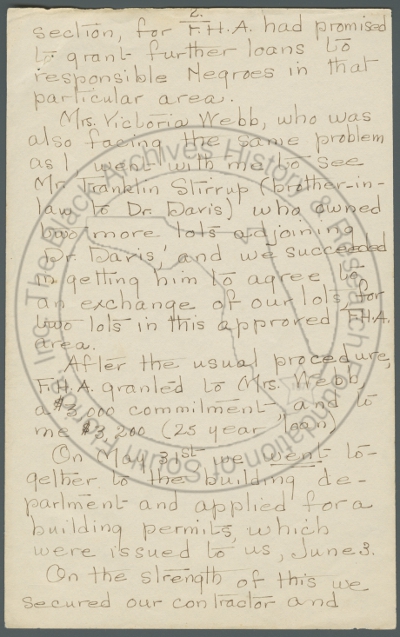 2.
section, for F.H.A. had promised
to grant further loans to
responsible Negroes in that
particular area.
Mrs. Victoria Webb, who was
also facing the same problem
as I, went with me to see
Mr. Franklin Stirrup (brother-in-
law to Dr. Davis) who owned
two more lots adjoining
Dr. Davis', and we succeeded
in getting him to agree to
an exchange of our lots for
two lots in this approved F.H.A.
area.
After the usual procedure,
F.H.A. granted to Mrs. Webb
a $3,000 commitment, and to
me $3,200 (25 year loan)
On May 31st we went to-
gether to the building de-
partment and applied for a
building permits, which
were issued to us, June 3.
On the strength of this we
secured our contractor and
The Black Archives History & Research Foundation of South Florida, Inc.